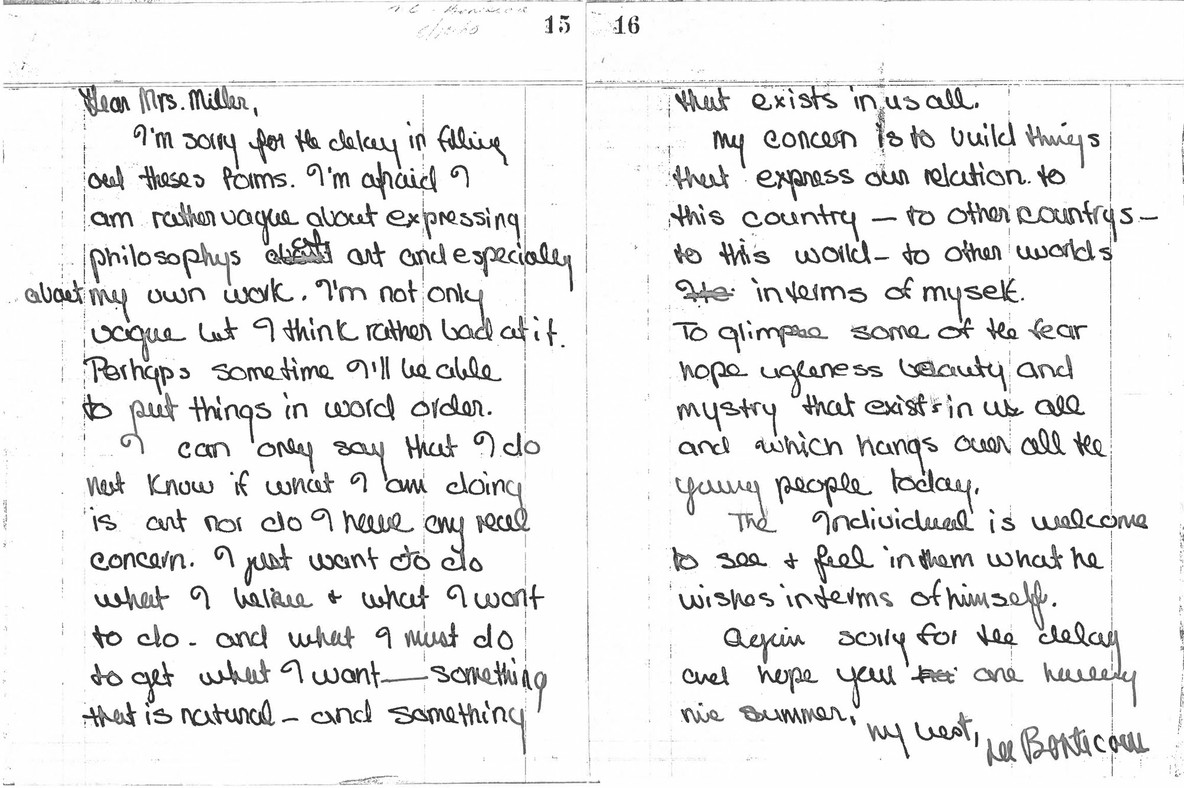 15
Dear Mrs. Miller,
I'm sorry for the delay in filling
out theses forms. I'm afraid I
am rather vague about expressing
philosophys art and especially
about my own work. I'm not only
vague but I think rather bad at it.
Perhaps sometime I'll be able
to put things in word order.
I can only say that I do
not know if what I am doing
is art nor do I have any real
concern. I just want to do
what I believe & what I want
to do - and what I must do
to get what I want — something
that is natural - and something
16
that exists in us all.
My concern is to build things
that express our relation to
this country — to other countrys —
to this world - to other worlds
in terms of myself.
To glimpse some of the fear
hope ugleness beauty and
mystry that exists in us all
and which hangs over all the
young people today.
The Individual is welcome
to see + feel in them what he
wishes in terms of himself.
Again sorry for the delay
and hope your are having
nice summer,
My best,
Lee Bontecou